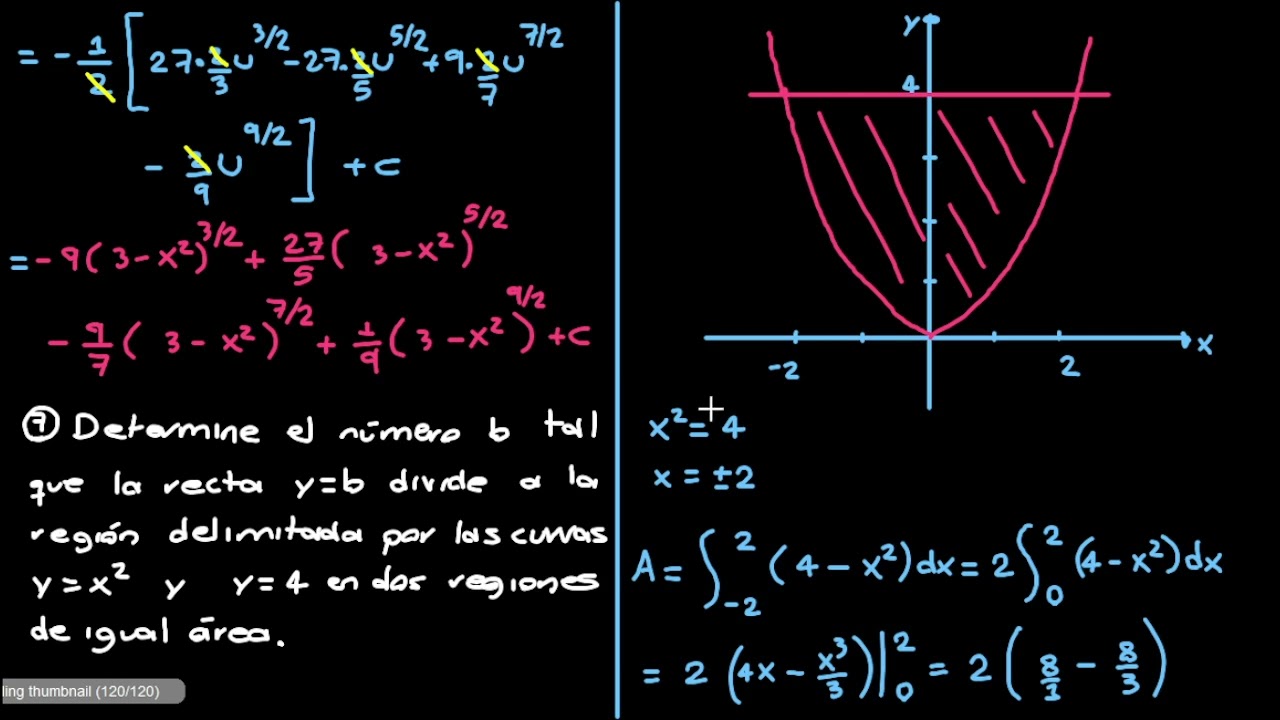 = - 1/2 [ 27·2/3 u^3/2 - 27·2/5 u^5/2 + 9·2/7 u^7/2
- 2/9 u^9/2 ] + c
= - 9 ( 3 - x² )^3/2 + 27/5 ( 3 - x² )^5/2
- 9/7 ( 3 - x² )^7/2 + 1/9 ( 3 - x² )^9/2 + c
⑦ Determine el número b tal
que la recta y=b divide a la
región delimitada por las curvas
y = x² y y = 4 en dos regiones
de igual área.
ling thumbnail (120/120)
y
4
x
-2 2
x² = 4
x = ±2
A = ∫_-2^2 ( 4 - x² ) dx = 2 ∫_0^2 (4 - x²) dx
= 2 ( 4x - x³/3 ) |_0^2 = 2 ( 8/1 - 8/3 )